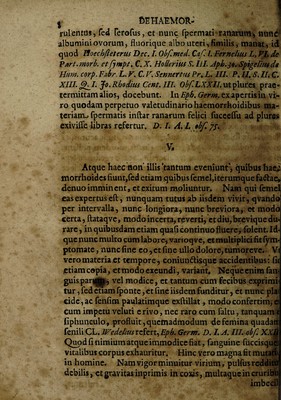 8 DE HAEMOR-
rulentus, sed serosus, et nunc spermati ranarum, nunc
albumini ovorum, fluorique albo uteri, similis, manat, id
quod Hoechsteterus Dec. I. Obs. med. Cas. I. Fernelius L. VI. de
Part. morb. et sympt. C. X. Hollerius S. III. Aph. 30. Spigelius de
Hum. corp. Fabr. L. V. C. V. Sennertus Pr. L. III. P. II. S. II. C.
XIII. Q. I. Jo. Rhodius Cent. III. Obs. LXXII. ut plures prae-
termittam alios, docebunt. In Eph. Germ. ex apertis in vi-
ro quodam perpetuo valetudinario haemorrhoidibus ma-
teriam spermatis instar ranarum felici successu ad plures
exivisse libras refertur. D. I. A. I. obs. 75.
V.
Atque haec non illis tantum eveniunt, quibus hae-
morrhoides fiunt, sed etiam quibus semel, iterumque factae,
denuo imminent, et exitum moliuntur. Nam qui semel
eas expertus est, nunquam tutus ab iisdem vivit, quando
per intervalla, nunc longiora, nunc breviora, et modo
certa, stataque, modo incerta, reverti, et diu, brevique du-
rare, in quibusdam etiam quasi continuo fluere, solent. Id-
que nunc multo cum labore, varioque, et multiplici sym-
ptomate, nunc sine eo, et sine ullo dolore, tumoreve. Ve-
vero materia et tempore, coniunctisque accidentibus: si
etiam copia, et modo exeundi, variant. Neque enim san-
guis parvus, vel modice, et tantum cum fecibus exprimi-
tur, sed etiam sponte, et sine iisdem funditur, et nunc pla-
cide, ac sensim paulatimque exstillat, modo confertim, e
cum impetu veluti e rivo, nec raro cum saltu, tanquam e
siphunculo, profluit, quemadmodum de femina quadam
senili CL. Wedelius refert, Eph. Germ. D. I. A. III. obs. XXII
Quod si nimium atque immodice fiat, sanguine succisque
vitalibus corpus exhauritur. Hinc vero magna fit mutati
in homine. Nam vigor minuitur virium, pulsus redditur
debilis, et gravitas inprimis in coxis, multaque in cruribus
imbecil-